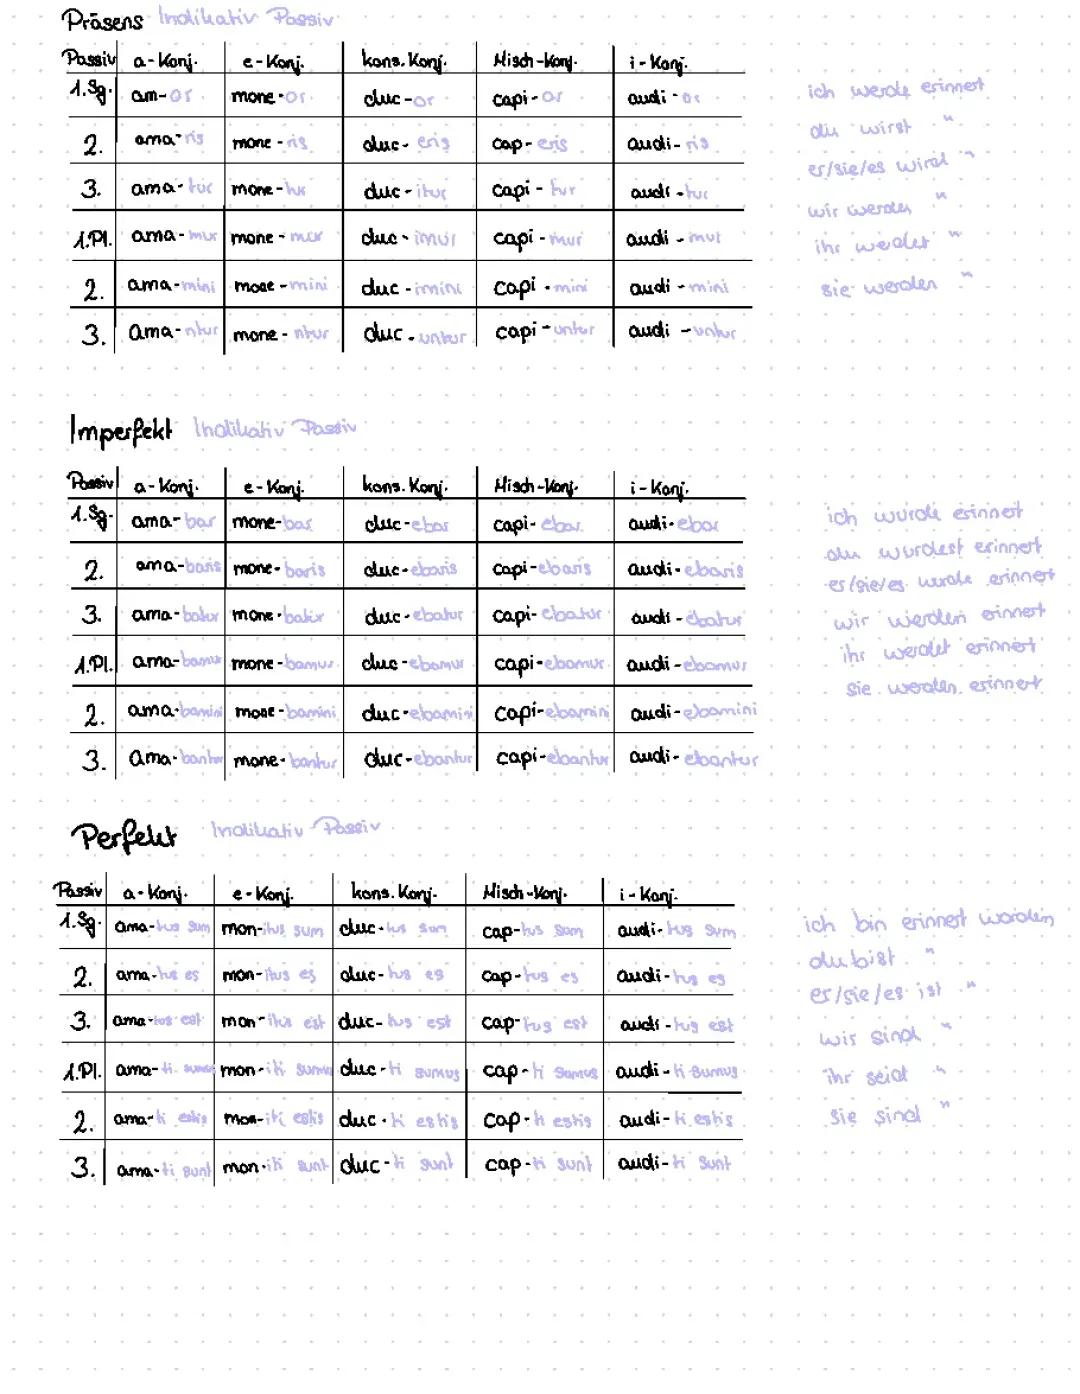 Präsens Indikativ Passiv
Passiv a-Konj. e-Konj. kons. Konj. Misch-Konj. i-Konj.
1.Sg. am-or mone-or duc-or capi-or audi-or ich werde erinnert
2. ama-ris mone-ris duc-eris cap-eris audi-ris du wirst "
3. ama-tur mone-tur duc-itur capi-tur audi-tur er/sie/es wird "
1.Pl. ama-mur mone-mur duc-imur capi-mur audi-mur wir werden "
2. ama-mini mone-mini duc-imini capi-mini audi-mini ihr werdet "
3. ama-ntur mone-ntur duc-untur capi-untur audi-untur sie werden "
Imperfekt Indikativ Passiv
Passiv a-Konj. e-Konj. kons. Konj. Misch-Konj. i-Konj.
1.Sg. ama-bar mone-bar duc-ebar capi-ebar audi-ebar ich wurde erinnert
2. ama-baris mone-baris duc-ebaris capi-ebaris audi-ebaris du wurdest erinnert
3. ama-batur mone-batur duc-ebatur capi-ebatur audi-ebatur er/sie/es wurde erinnert
1.Pl. ama-bamur mone-bamur duc-ebamur capi-ebamur audi-ebamur wir werden erinnert
2. ama-bamini mone-bamini duc-ebamini capi-ebamini audi-ebamini ihr werdet erinnert
3. ama-bantur mone-bantur duc-ebantur capi-ebantur audi-ebantur sie werden erinnert
Perfekt Indikativ Passiv
Passiv a-Konj. e-Konj. kons. Konj. Misch-Konj. i-Konj.
1.Sg. ama-tus sum mon-itus sum duc-tus sum cap-tus sum audi-tus sum ich bin erinnert worden
2. ama-tus es mon-itus es duc-tus es cap-tus es audi-tus es du bist "
3. ama-tus est mon-itus est duc-tus est cap-tus est audi-tus est er/sie/es ist "
1.Pl. ama-ti sumus mon-iti sumus duc-ti sumus cap-ti sumus audi-ti sumus wir sind "
2. ama-ti estis mon-iti estis duc-ti estis cap-ti estis audi-ti estis ihr seid "
3. ama-ti sunt mon-iti sunt duc-ti sunt cap-ti sunt audi-ti sunt sie sind "